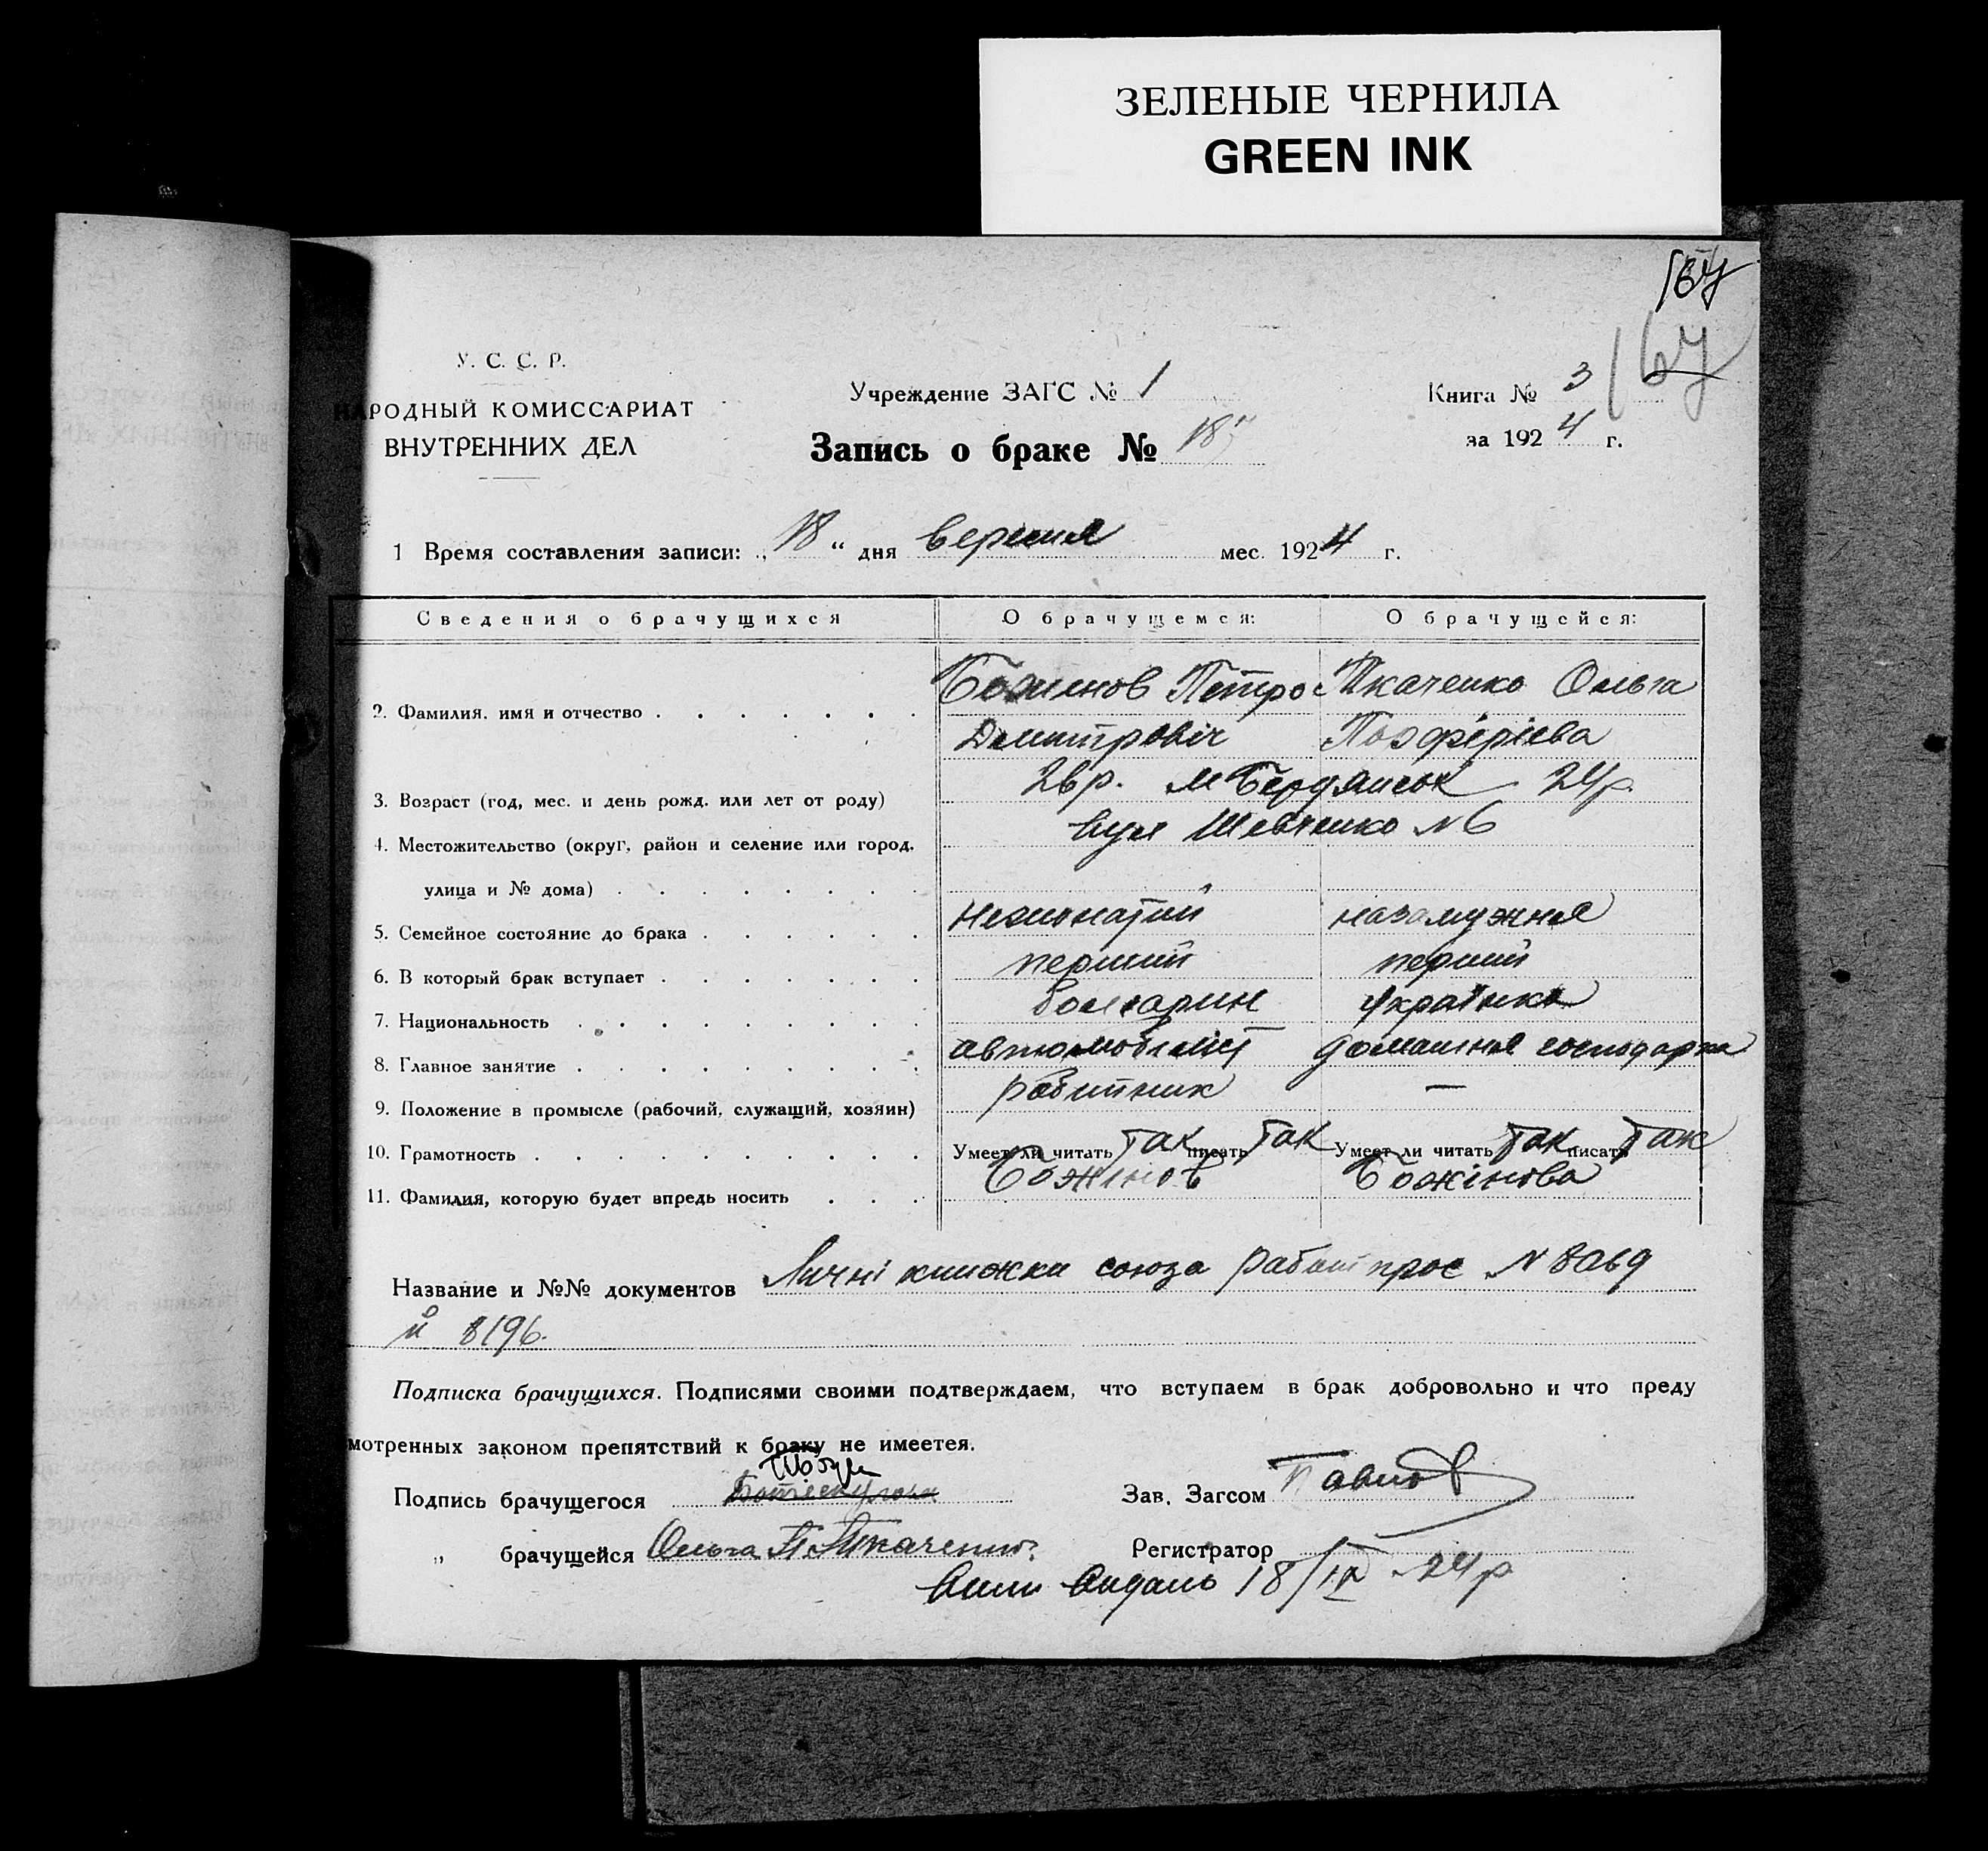 ЗЕЛЕНЫЕ ЧЕРНИЛА
GREEN INK
167
167
У. С. С. Р.
НАРОДНЫЙ КОМИССАРИАТ
ВНУТРЕННИХ ДЕЛ
Учреждение ЗАГС № 1
Запись о браке № 187
Книга № 3
за 1924 г.
1 Время составления записи: „18“ дня вересня мес. 1924 г.
Сведения о брачущихся О брачущемся: О брачущейся:
2. Фамилия, имя и отчество Божинов Петро Ткаченко Ольга
Дмитровіч Порфіріева
3. Возраст (год, мес. и день рожд. или лет от роду) 26р. м Бердянськ 24р.
4. Местожительство (округ, район и селение или город, вул Шевченко № 6
улица и № дома)
5. Семейное состояние до брака нежонатий незамужня
6. В который брак вступает перший перший
7. Национальность болгарин Українка
8. Главное занятие автомобіліст домашня господарка
9. Положение в промысле (рабочий, служащий, хозяин) робітник —
10. Грамотность Умеет ли читать так писать так Умеет ли читать так писать так
11. Фамилия, которую будет впредь носить Божінов Божінова
Название и №№ документов Личні книжки союза Работпрос № 8069
й 8196.
Подписка брачущихся. Подписями своими подтверждаем, что вступаем в брак добровольно и что преду
мотренных законом препятствий к браку не имеется.
Подпись брачущегося
Зав. Загсом Павлов
„ брачущейся Ольга П Ткаченко.
Регистратор
18/IX 24р